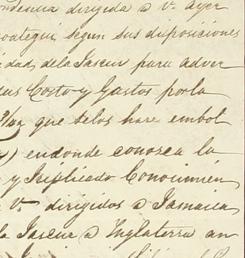 ndencia dirigida a V. Ayer
oategui segun sus disposiciones
idad, dela Jascur para adver
sus Costo y Gastos por la
que selos hare embol
) endonde conosca la
y Triplicado Conocimien
V. dirigidos a Jamaica
la Jascur a Inglaterra an